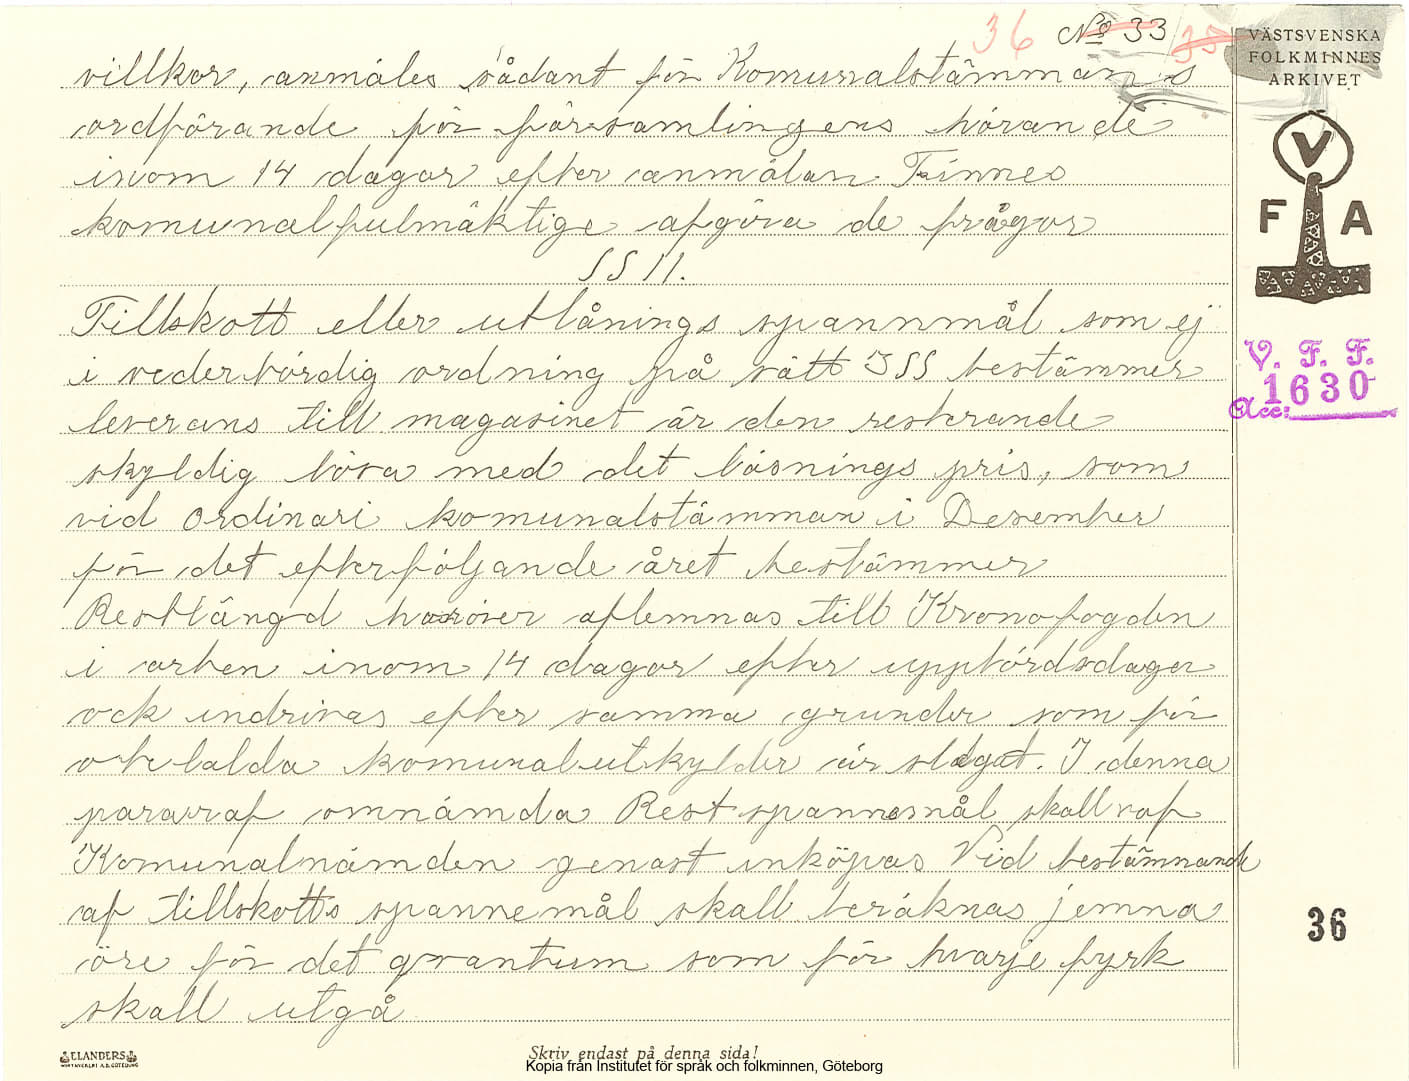 36 № 33 35
VÄSTSVENSKA
FOLKMINNES
ARKIVET
villkor, anmäles sådant för Komunalstämmans
ordförande för församlingens hörande
inom 14 dagar efter anmälan. Finnes
komunalfulmäktige afgöra de frågor
SS 11.
Tillskott eller utlånings spannmål som ej
i vederbördig ordning på sätt ISS bestämmer
leverans till magasinet är den resterande
skyldig lösa med det lösnings pris, som
vid ordinari komunalstämman i Desember
för det efterföljande året bestämmer
Restlängd häröver aflemnas till Kronofogden
i orten inom 14 dagar efter uppbördsdagen
ock indrivas efter samma grunder som för
obetalda komunalutskylder är stagat. I denna
pararraf omnämda Rest spannemål skall raf
Komunalnämden genast inköpas Vid bestämnande
af tillskotts spannemål skall beräknas jemna
öre för det qvantum som för hvarje fyrk
skall utgå
V
F A
V. F. F.
1630
Acc:
36
ELANDERS
Skriv endast på denna sida!
Kopia från Institutet för språk och folkminnen, Göteborg